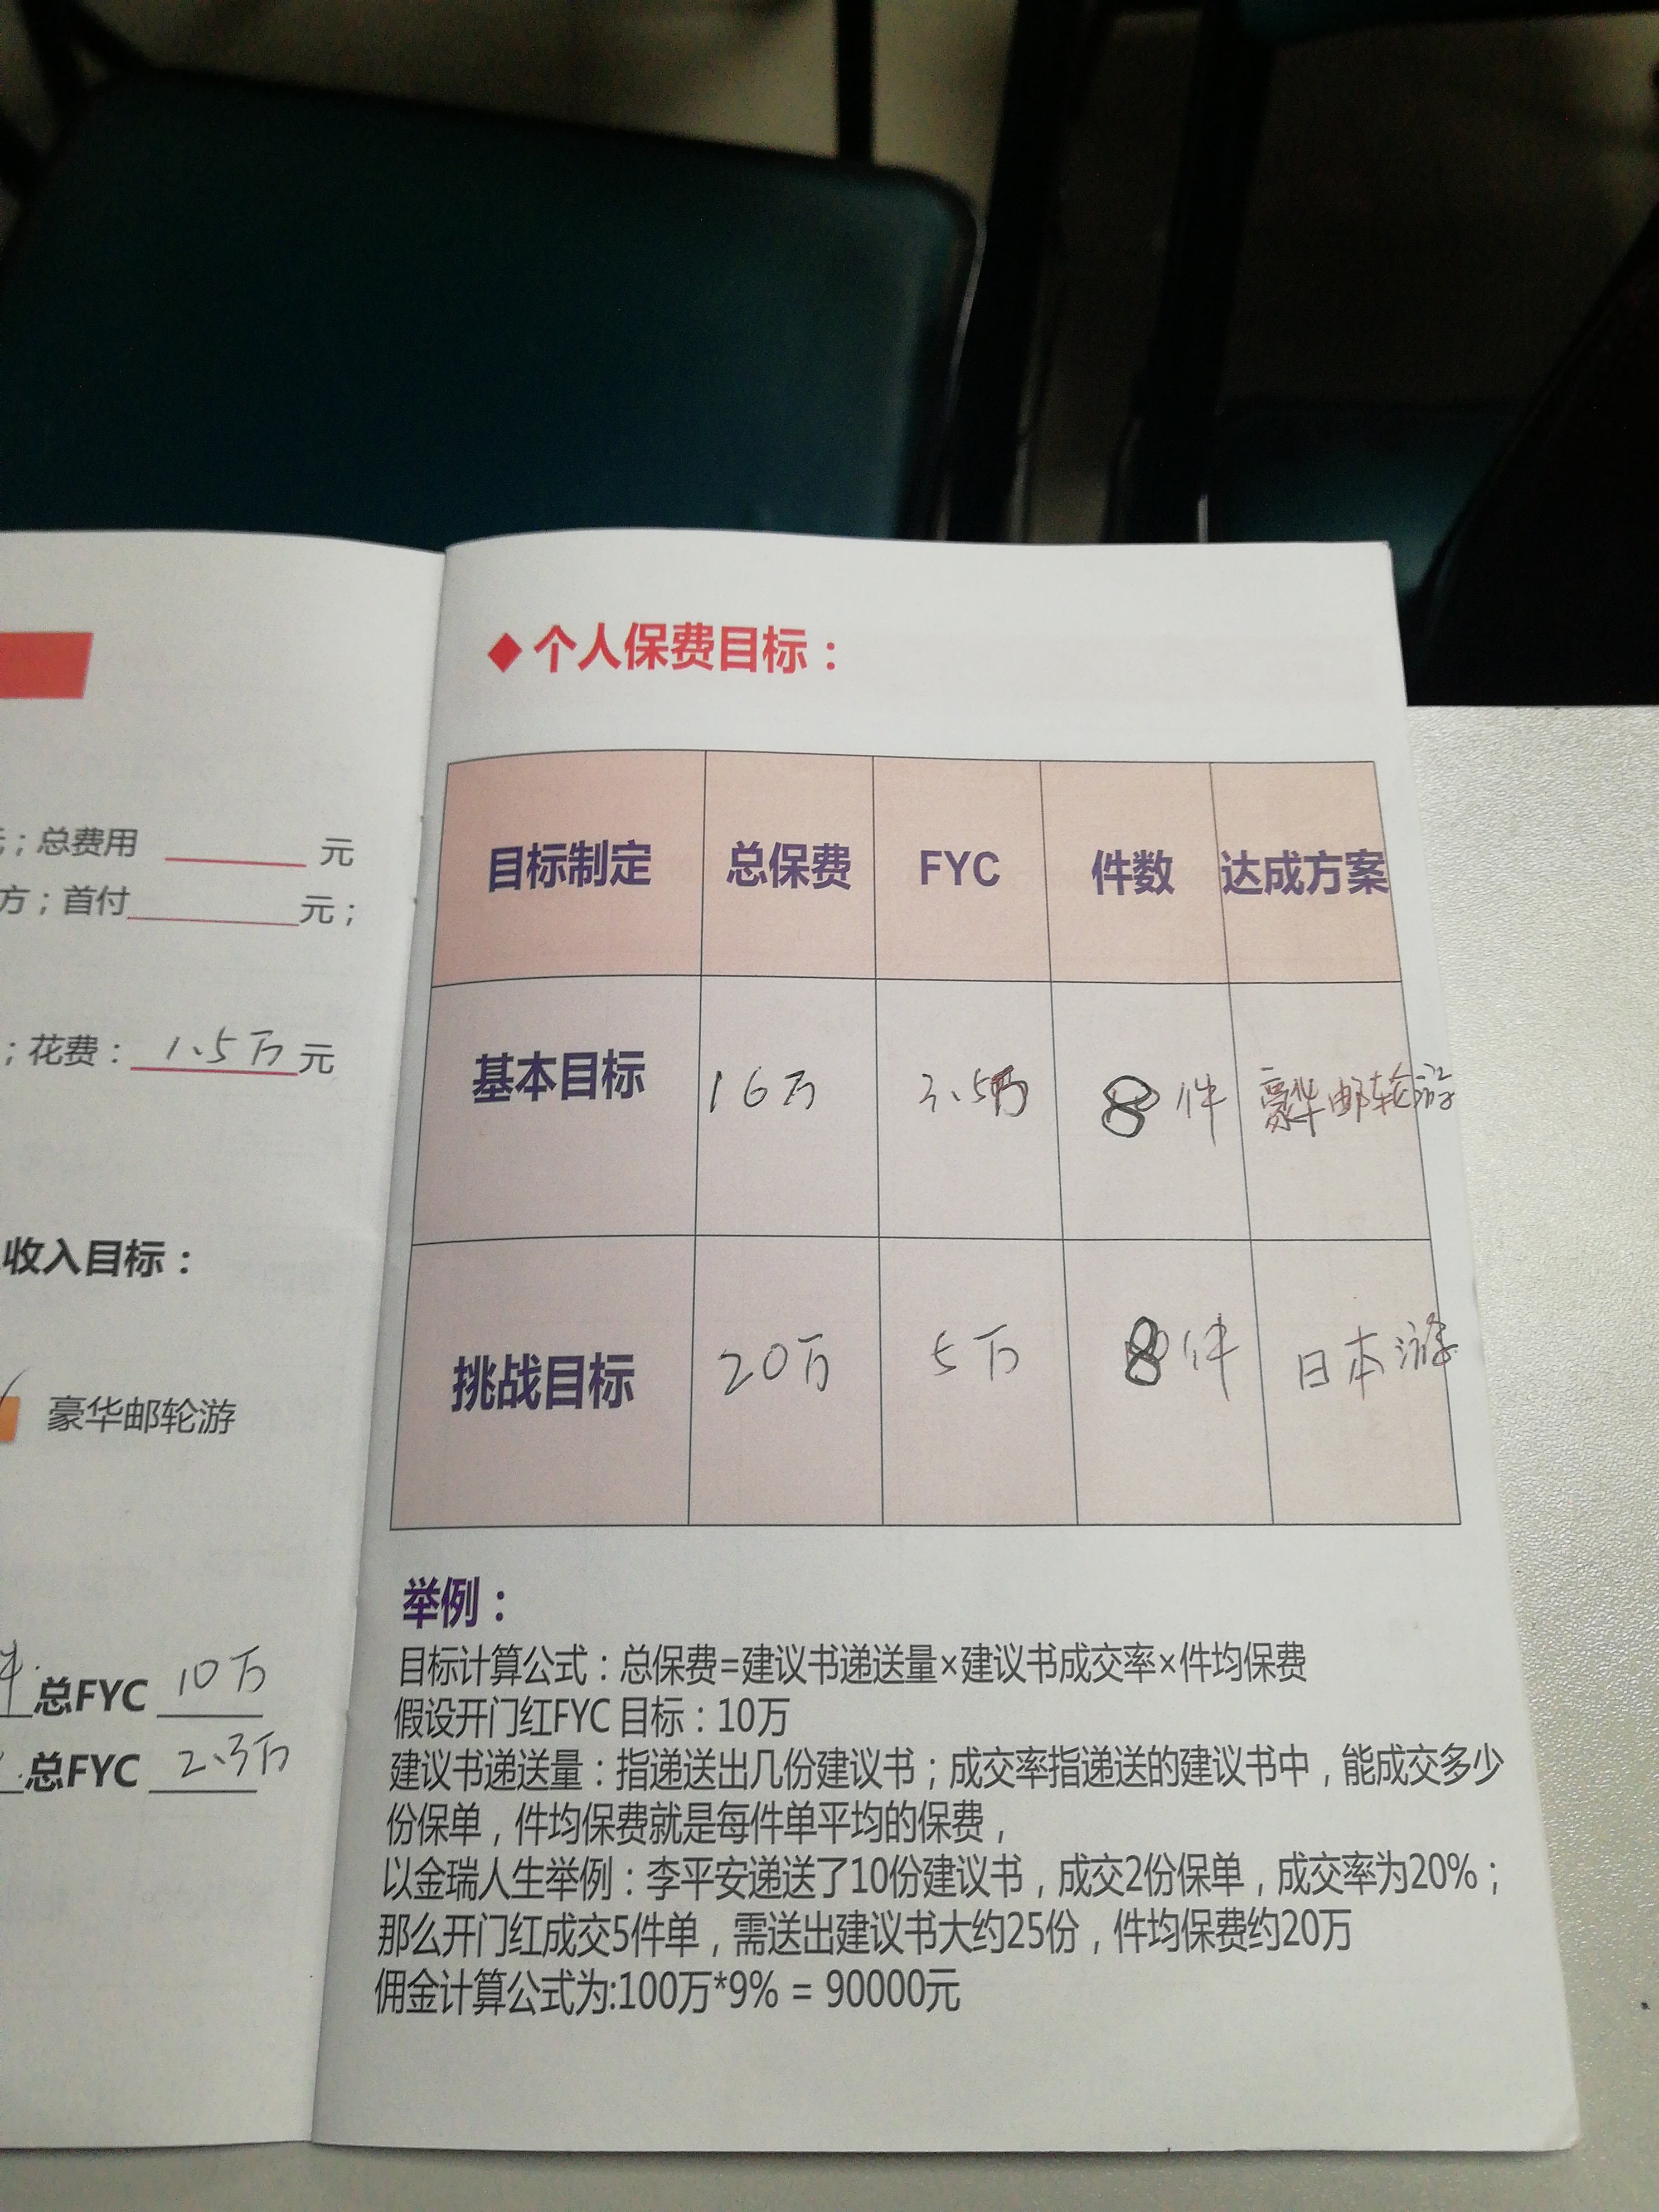 ；总费用 元
方；首付 元；
；花费：1.5万元
收入目标：
豪华邮轮游
总FYC 10万
总FYC 2.3万
◆个人保费目标：
目标制定 总保费 FYC 件数 达成方案
基本目标 16万 8件 豪华邮轮游
挑战目标 20万 5万 8件 日本游
举例：
目标计算公式：总保费=建议书递送量×建议书成交率×件均保费
假设开门红FYC 目标：10万
建议书递送量：指递送出几份建议书；成交率指递送的建议书中，能成交多少
份保单，件均保费就是每件单平均的保费，
以金瑞人生举例：李平安递送了10份建议书，成交2份保单，成交率为20%；
那么开门红成交5件单，需送出建议书大约25份，件均保费约20万
佣金计算公式为:100万*9% = 90000元